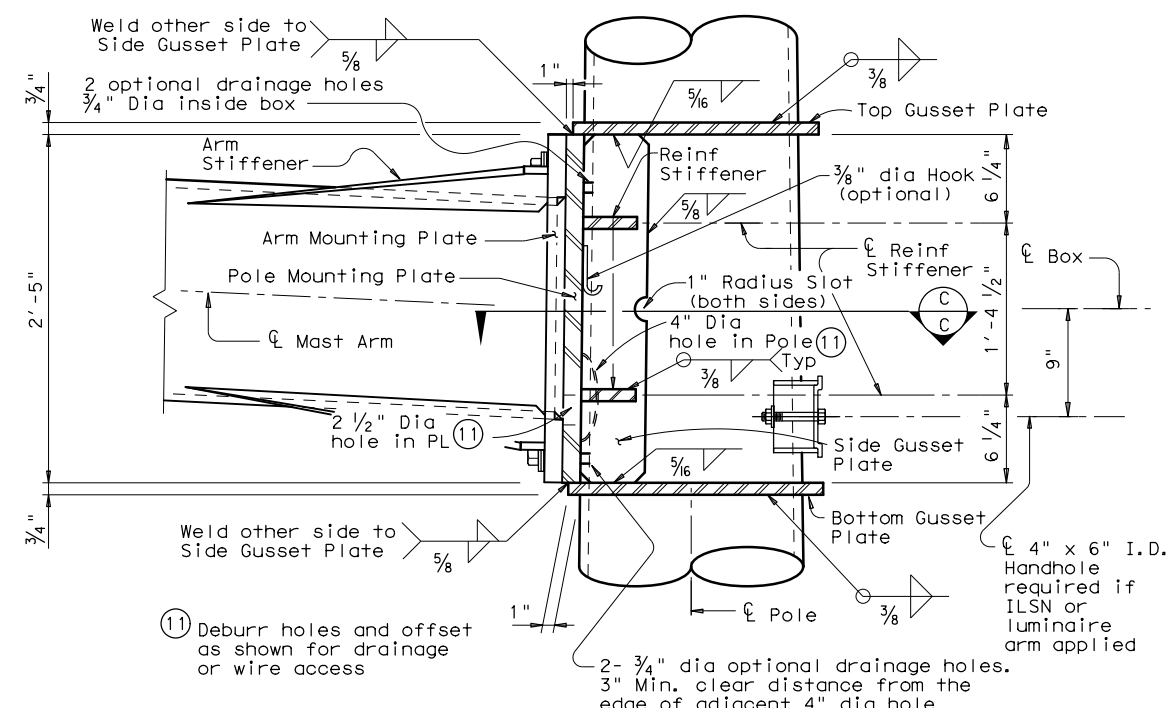 Weld other side to
Side Gusset Plate
5/8
2 optional drainage holes
3/4" Dia inside box
3/4"
1"
5/16
3/8
Top Gusset Plate
Arm
Stiffener
Reinf
Stiffener
5/8
3/8" dia Hook
(optional)
6 1/4"
Arm Mounting Plate
Pole Mounting Plate
℄ Reinf
Stiffener
℄ Box
1" Radius Slot
(both sides)
C
C
2'-5"
℄ Mast Arm
4" Dia
hole in Pole 11
Typ
3/8
1'-4 1/2"
9"
2 1/2" Dia
hole in PL 11
Side Gusset
Plate
5/16
6 1/4"
3/4"
Weld other side to
Side Gusset Plate
5/8
Bottom Gusset
Plate
℄ 4" x 6" I.D.
Handhole
required if
ILSN or
luminaire
arm applied
1"
℄ Pole
3/8
11 Deburr holes and offset
as shown for drainage
or wire access
2- 3/4" dia optional drainage holes.
3" Min. clear distance from the
edge of adjacent 4" dia hole